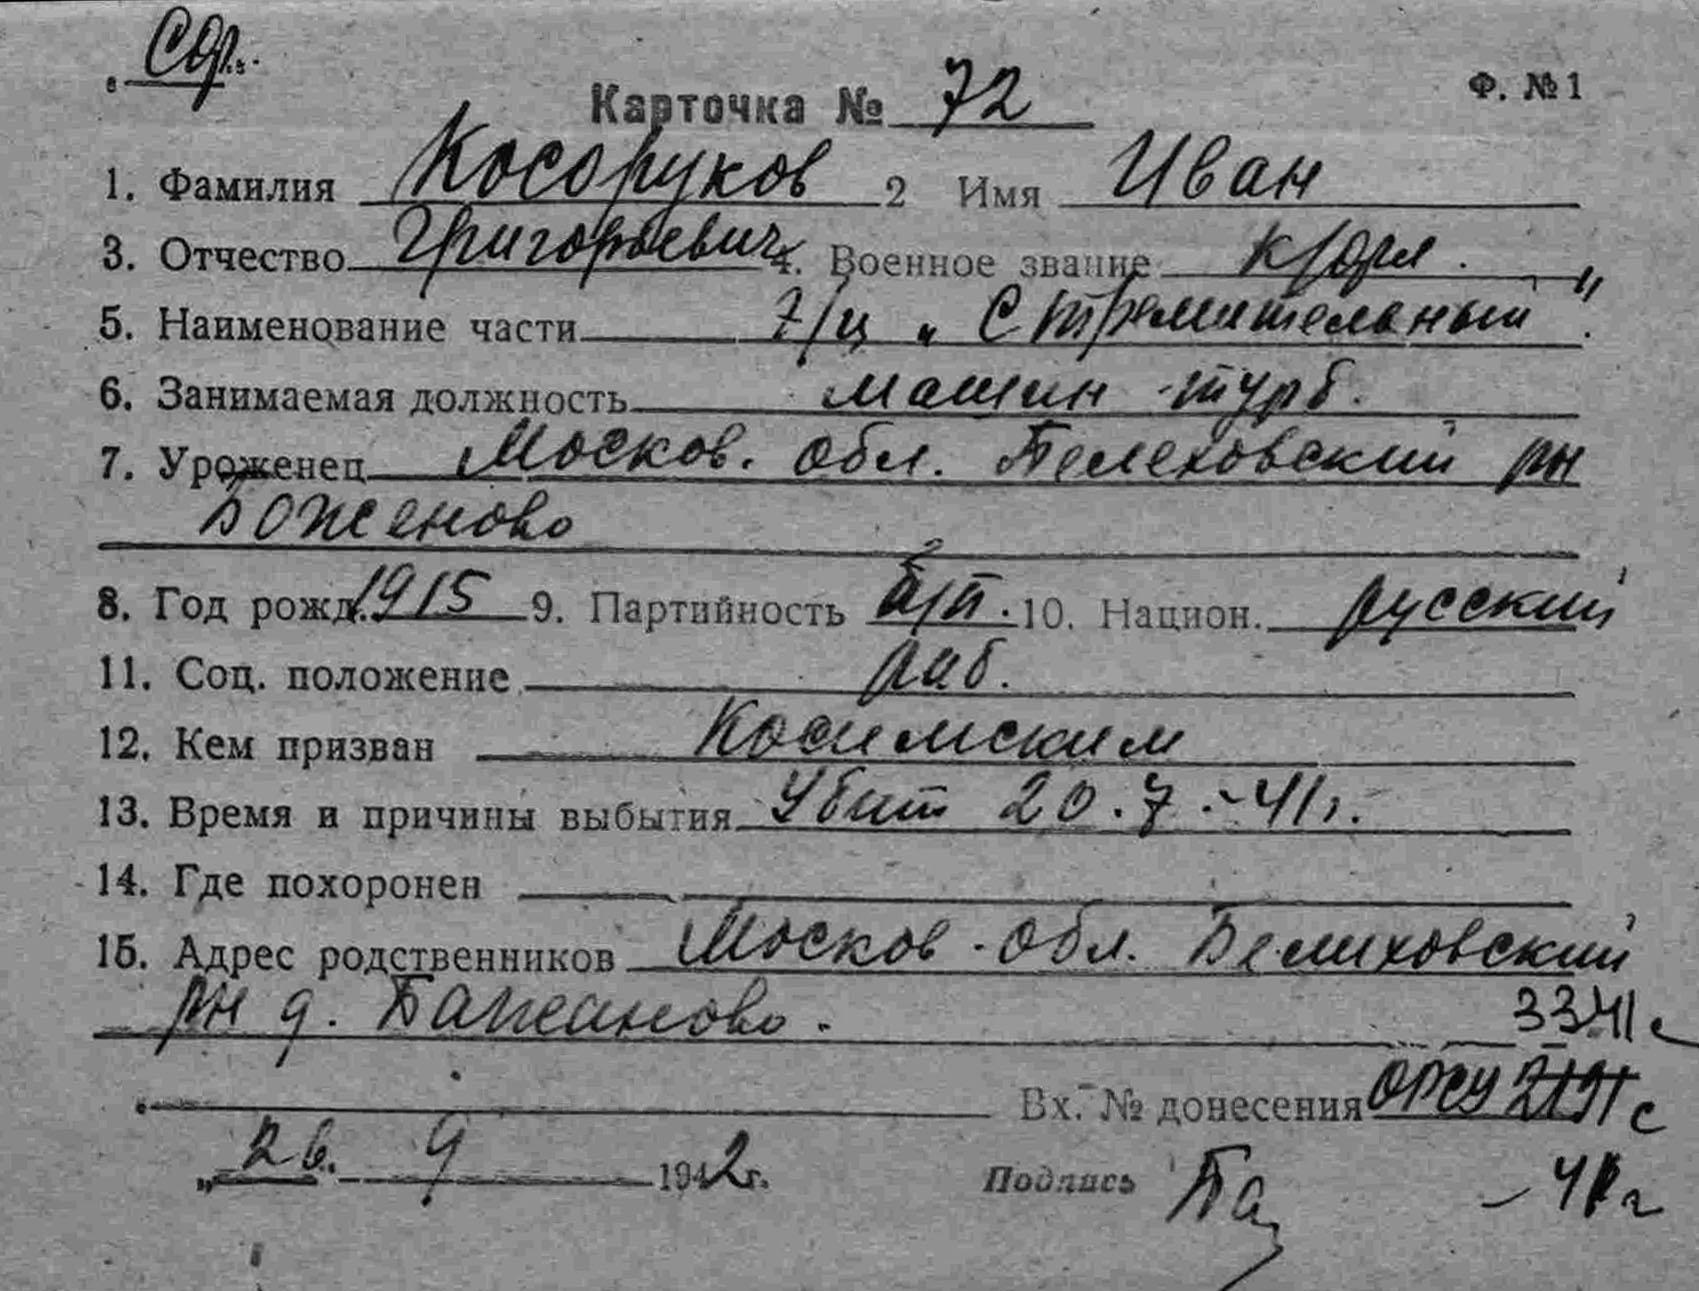 Сф.
Карточка № 72 Ф. № 1
1. Фамилия Косоруков 2 Имя Иван
3. Отчество Григорьевич 4. Военное звание к/фл.
5. Наименование части "Стремительный".
6. Занимаемая должность машин-турб.
7. Уроженец Москов. обл. Белеховский рн
Боженово
8. Год рожд. 1915 9. Партийность б/п. 10. Национ. русский
11. Соц. положение раб.
12. Кем призван Косимским
13. Время и причины выбытия Убит 20.7.-41г.
14. Где похоронен
15. Адрес родственников Москов-обл. Белиховский
рн д. Бажаново.
3341с
Вх. № донесения 2191с
„26. 9 1942г. Подпись
-41г